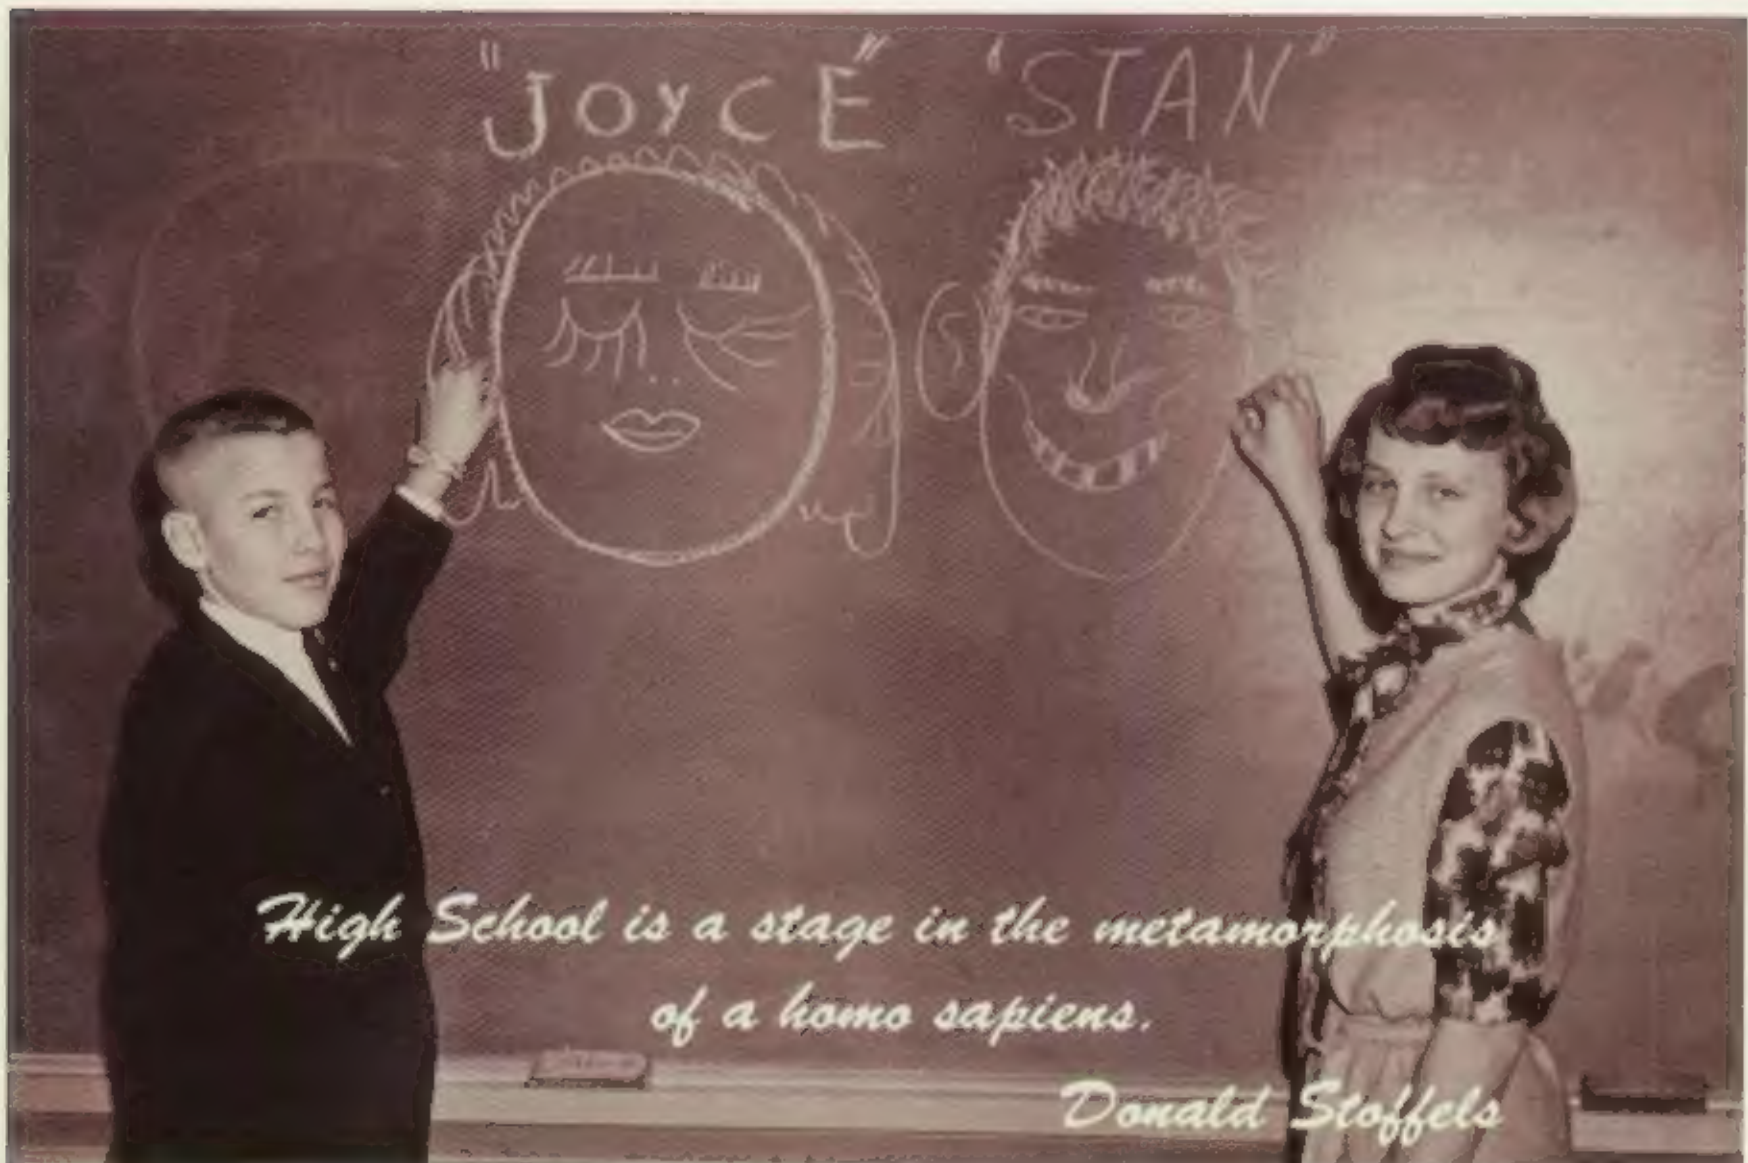 "JOYCE" 'STAN"
High School is a stage in the metamorphosis
of a homo sapiens.
Donald Stoffels